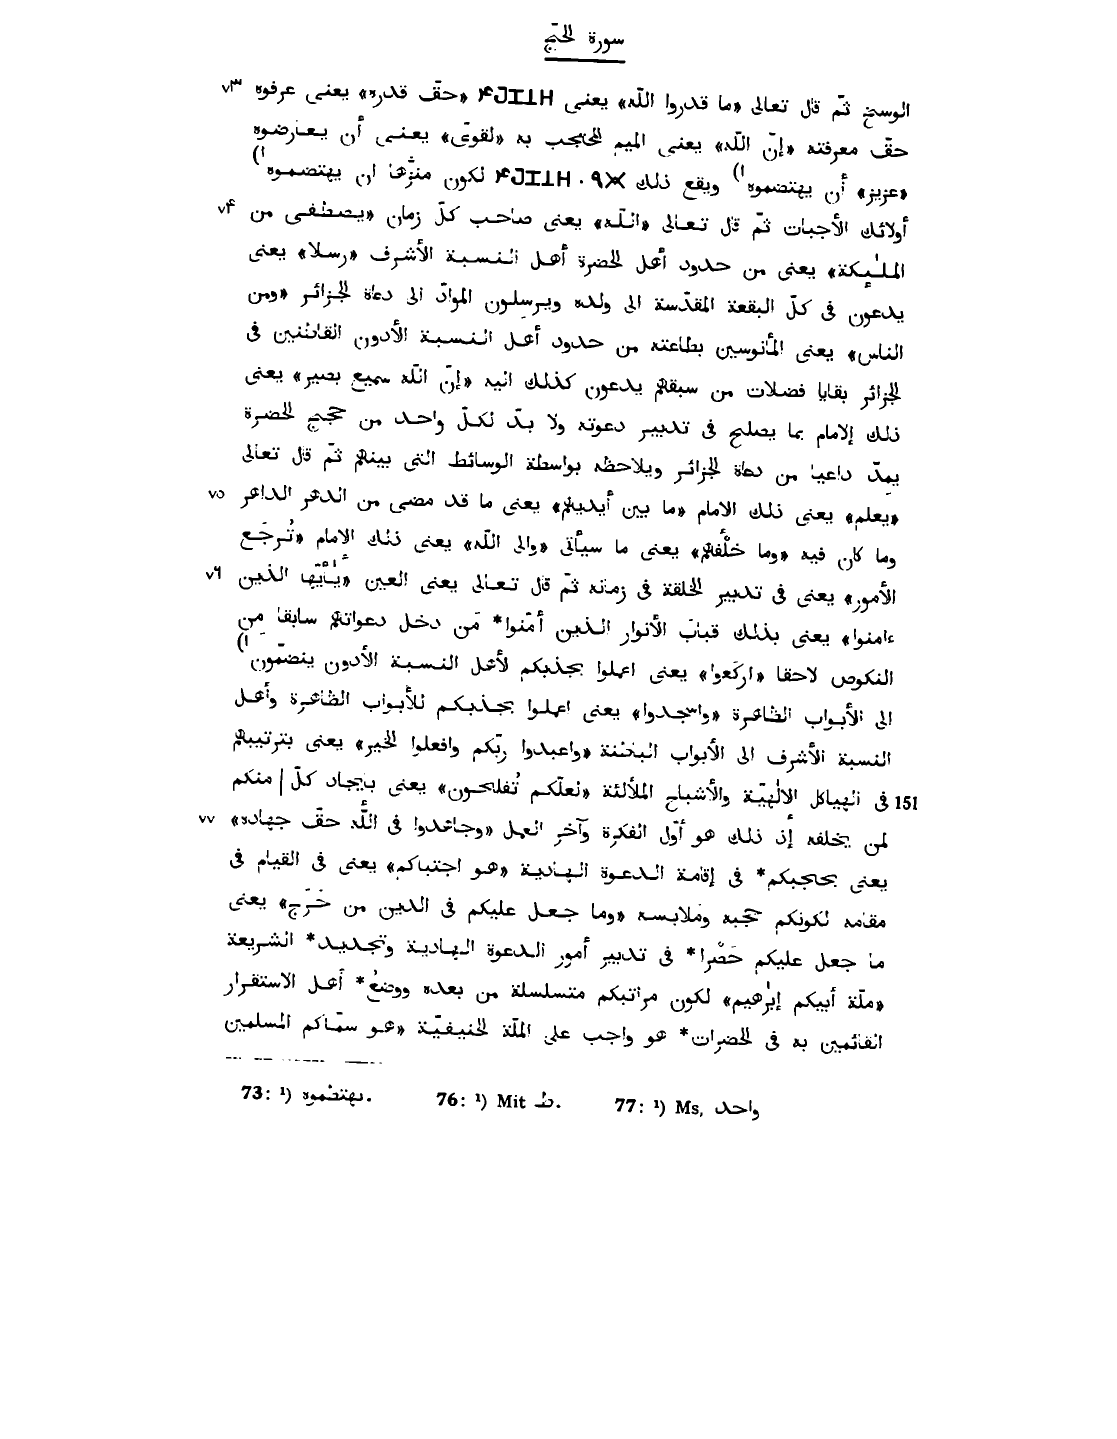 سورة الحجّ
الوسخ ثمّ قال تعالى «ما قدروا اللّه» يعنى «حقّ قدره» يعنى عرفوه ٧٣
حقّ معرفته «إنّ اللّه» يعنى الميم المحتجب به «لقوىّ» يعنى أن يعارضوه
«عزيز» أن يهتضموه¹) ويقع ذلك لكون منزّها ان يهتضموه¹)
أولائك الأجبات ثمّ قال تعالى «اللّه» يعنى صاحب كلّ زمان «يصطفى من ٧۴
الملٰٓئكة» يعنى من حدود أهل الحضرة أهل النسبة الأشرف «رسلا» يعنى
يدعون فى كلّ البقعة المقدّسة الى ولده ويرسلون الموادّ الى دعاة الجزائر «ومن
الناس» يعنى المأنوسين بطاعته من حدود أهل النسبة الأدون القائنين فى
الجزائر بقايا فضلات من سبقهم يدعون كذلك اليه «إنّ اللّه سميع بصير» يعنى
ذلك الإمام بما يصلح فى تدبير دعوته ولا بدّ لكلّ واحد من حجج الحضرة
يمدّ داعيا من دعاة الجزائر ويلاحظه بواسطة الوسائط التى بينهم ثمّ قال تعالى
«يعلم» يعنى ذلك الامام «ما بين أيديهم» يعنى ما قد مضى من الدهر الداهر ٧٥
وما كان فيه «وما خلْفهم» يعنى ما سيأتى «والى اللّه» يعنى ذلك الإمام «تُرجَع
الأمور» يعنى فى تدبير الخلقة فى زمانه ثمّ قال تعالى يعنى العين «يٰأيّها الذين ٧٦
ءامنوا» يعنى بذلك قبابَ الأنوار الذين أمّنوا* مَن دخل دعواتهم سابقا مِن
النكوص لاحقا «اركَعوا» يعنى اعملوا بجذبكم لأهل النسبة الأدون ينضمّون¹)
الى الأبواب الظاهرة «واسجدوا» يعنى اعملوا بجذبكم للأبواب الظاهرة وأهل
النسبة الأشرف الى الأبواب الباطنة «واعبدوا ربّكم وافعلوا الخير» يعنى بترتيبهم
151 فى الهياكل الإلٰهيّة والأشباح الملألئة «لعلّكم تُفلحون» يعنى بايجاد كلّ | منكم
لمن يخلفه إذ ذلك هو أوّل الفكرة وآخر العمل «وجاهدوا فى اللّه حقّ جهاده» ٧٧
يعنى بحاجبكم* فى إقامة الدعوة الهادية «هو اجتباكم» يعنى فى القيام فى
مقامه لكونكم حجبه وملابسه «وما جعل عليكم فى الدين من حَرَج» يعنى
ما جعل عليكم حَصْرا* فى تدبير أمور الدعوة الهادية وتجديد* الشريعة
«ملّة أبيكم إبرٰهيم» لكون مراتبكم متسلسلة من بعده ووضعُ* أهل الاستقرار
القائمين به فى الحضرات* هو واجب على الملّة الحنيفيّة «هو سمّاكم المسلمين
73: ¹) يهتضموه. 76: ¹) Mit ط. 77: ¹) Ms, واحد